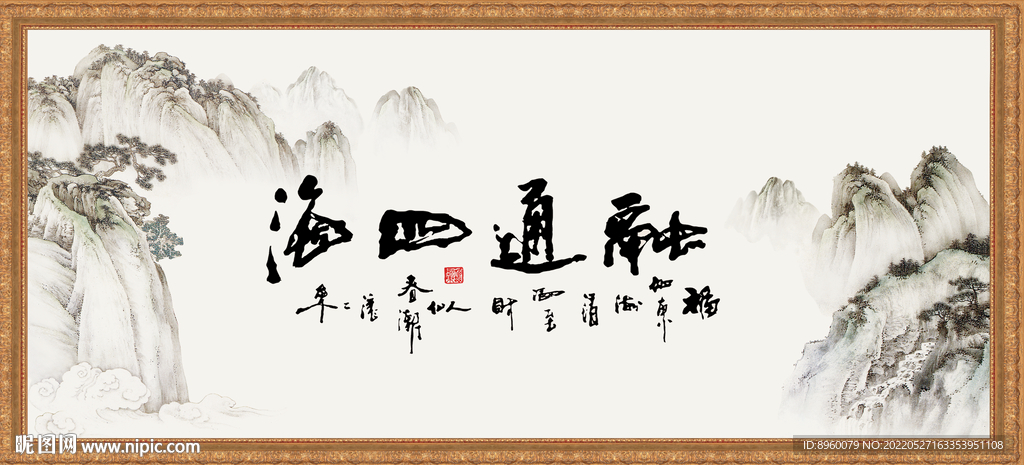 融通四海
福如东海滔滔至财似春潮滚滚来
昵图网 www.nipic.com
ID:8960079 NO:20220527163353951108